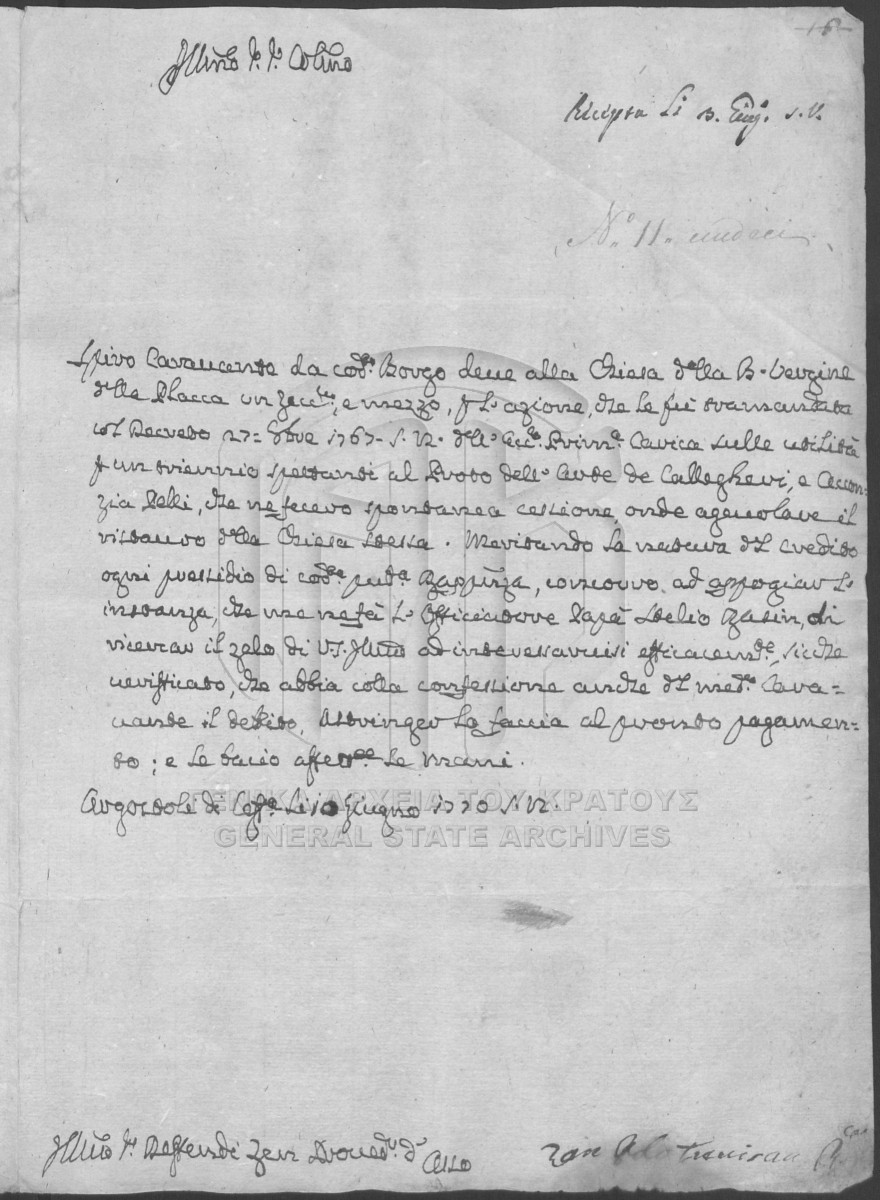 -16-
Illmo Sr. Sr. Colmo
Ricepta Li 13. Giug.o S.V.
No. 11. undeci
Spiro Cavacante da cod.o Borgo deve alla Chiesa della B. Vergine
della Placca un Zecc.no, e mezzo, p l'azione, che le fù tramandata
col Decreto 27 = 8bre 1767 = S.N. dell'Ecc.ma Prim.a Carica sulle utilità
p un triennio spettanti al Proto dell'Arte de Callegheri, e Accon=
zia Pelli, che ne fecero spontanea cessione, onde agevolare il
ristauro della Chiesa stessa. Meritando la natura del credito
ogni presidio di cod.a pub.a Rapp.nza, concorro ad appogiar l'
instanza, che me ne fà l'Officiatore Papà Stelio Zasin, di
ricercar il zelo di V.S. Illma ad interessarvisi efficacem.te, sicche
verificato, che abbia colla confessione anche del med.o Cava=
cante il debito, Astringer lo faccia al pronto pagamen=
to; e le bacio affett.te le mani.
Argostoli di Ceff.a Li 10 Giugno 1770 S.N.
ΓΕΝΙΚΑ ΑΡΧΕΙΑ ΤΟΥ ΚΡΑΤΟΥΣ
GENERAL STATE ARCHIVES
Illmo Sr. Deffendi Zen Proved.r d'Asso
Zan